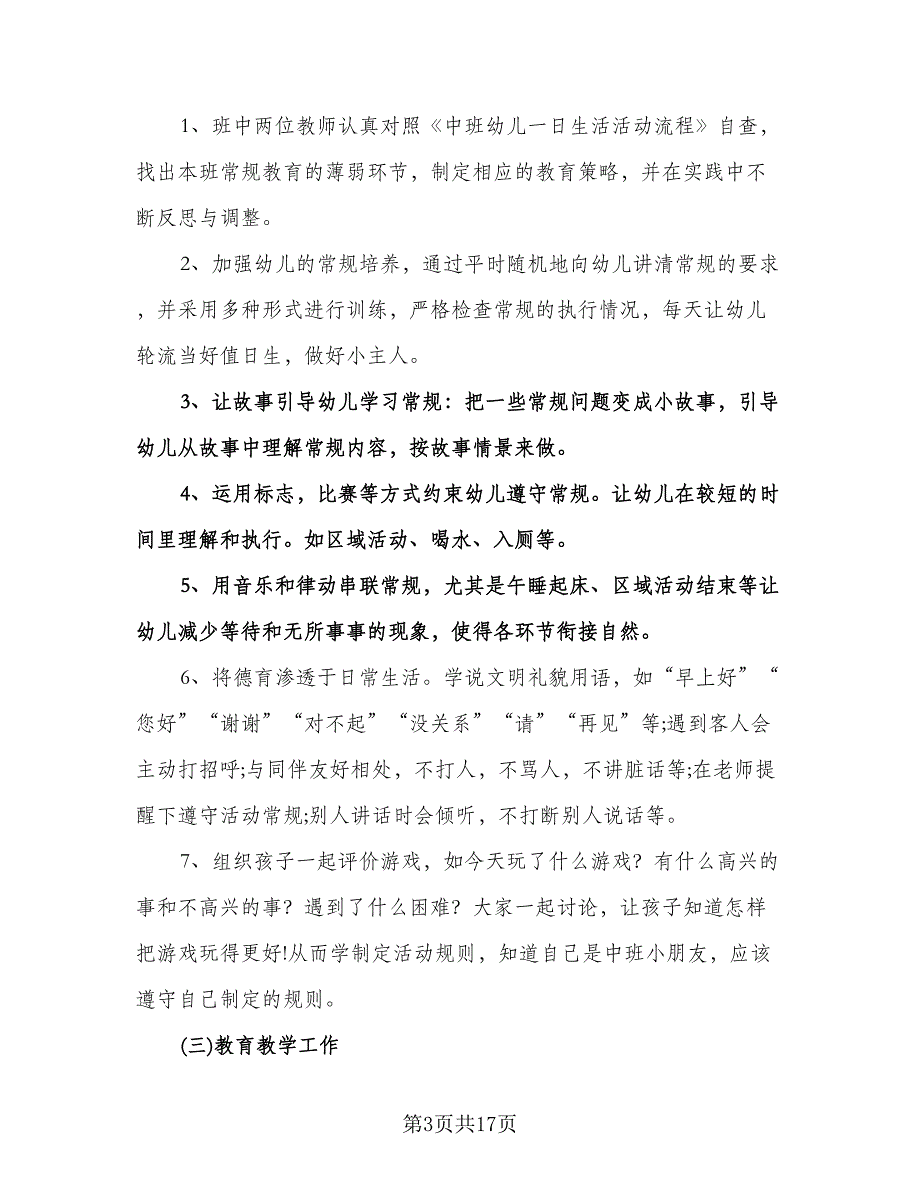 1、班中两位教师认真对照《中班幼儿一日生活活动流程》自查，
找出本班常规教育的薄弱环节，制定相应的教育策略，并在实践中不
断反思与调整。
2、加强幼儿的常规培养，通过平时随机地向幼儿讲清常规的要求
，并采用多种形式进行训练，严格检查常规的执行情况，每天让幼儿
轮流当好值日生，做好小主人。
3、让故事引导幼儿学习常规：把一些常规问题变成小故事，引导
幼儿从故事中理解常规内容，按故事情景来做。
4、运用标志，比赛等方式约束幼儿遵守常规。让幼儿在较短的时
间里理解和执行。如区域活动、喝水、入厕等。
5、用音乐和律动串联常规，尤其是午睡起床、区域活动结束等让
幼儿减少等待和无所事事的现象，使得各环节衔接自然。
6、将德育渗透于日常生活。学说文明礼貌用语，如“早上好”“
您好”“谢谢”“对不起”“没关系”“请”“再见”等;遇到客人会
主动打招呼;与同伴友好相处，不打人，不骂人，不讲脏话等;在老师提
醒下遵守活动常规;别人讲话时会倾听，不打断别人说话等。
7、组织孩子一起评价游戏，如今天玩了什么游戏？有什么高兴的
事和不高兴的事？遇到了什么困难？大家一起讨论，让孩子知道怎样
把游戏玩得更好!从而学制定活动规则，知道自己是中班小朋友，应该
遵守自己制定的规则。
(三)教育教学工作
第3页共17页